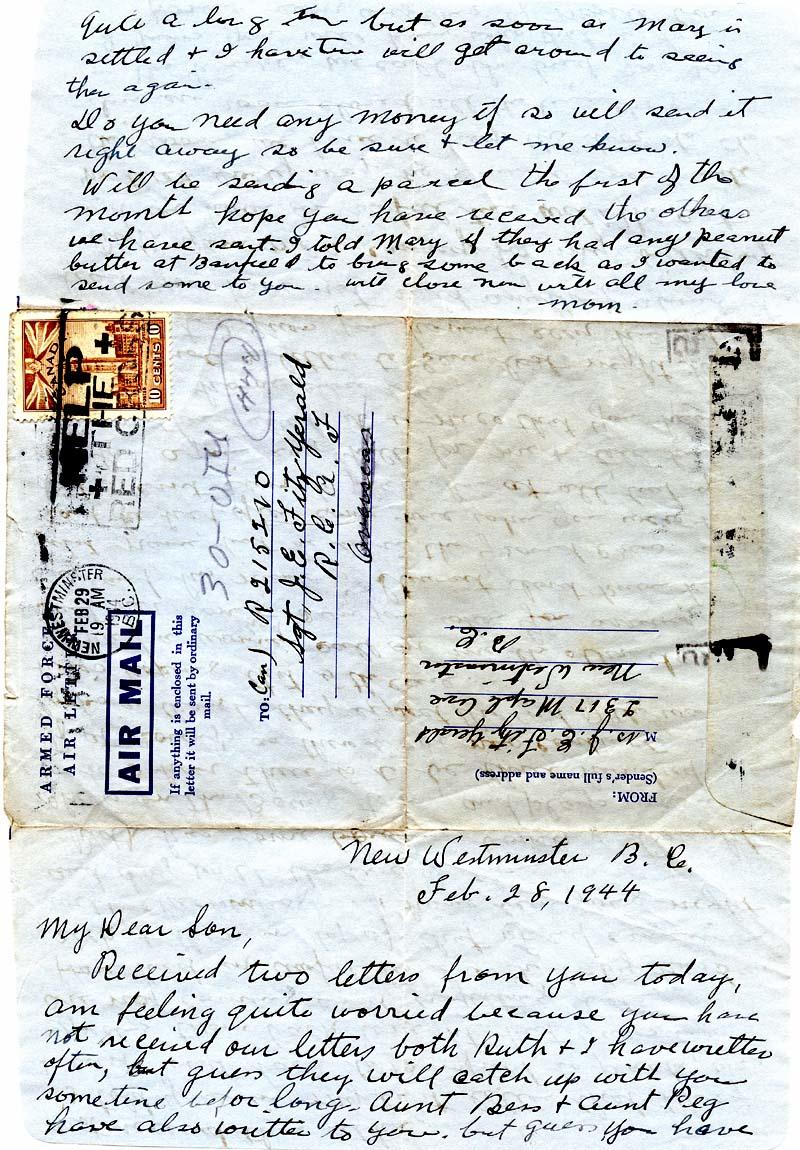 quite a long time but as soon as Mary is
settled + I have time will get around to seeing
them again.
Do you need any money if so will send it
right away so be sure + let me know.
Will be sending a parcel the first of the
month hope you have received the others
we have sent. I told Mary if they had any peanut
butter at Banfield to bring some back as I wanted to
send some to you. will close now with all my love
Mom.
CANADA
10 CENTS 10
HELP
+ THE +
+ RED CROSS
NEW WESTMINSTER
FEB 29
19 AM
1944
B.C.
ARMED FORCES
AIR LETTER
AIR MAIL
If anything is enclosed in this
letter it will be sent by ordinary
mail.
30-OTU
TO: Can) R 215210
Sgt J. E. Fitzgerald
R. C. A. F
Overseas
FROM:
(Sender's full name and address)
Mrs J. E. Fitzgerald
2317 Maple Ave
New Westminster
B. C.
New Westminster B. C.
Feb. 28, 1944
My Dear Son,
Received two letters from you today,
am feeling quite worried because you have
not received our letters both Ruth + I have written
often, but guess they will catch up with you
sometime before long. Aunt Bess + Aunt Peg
have also written to you. but guess you have